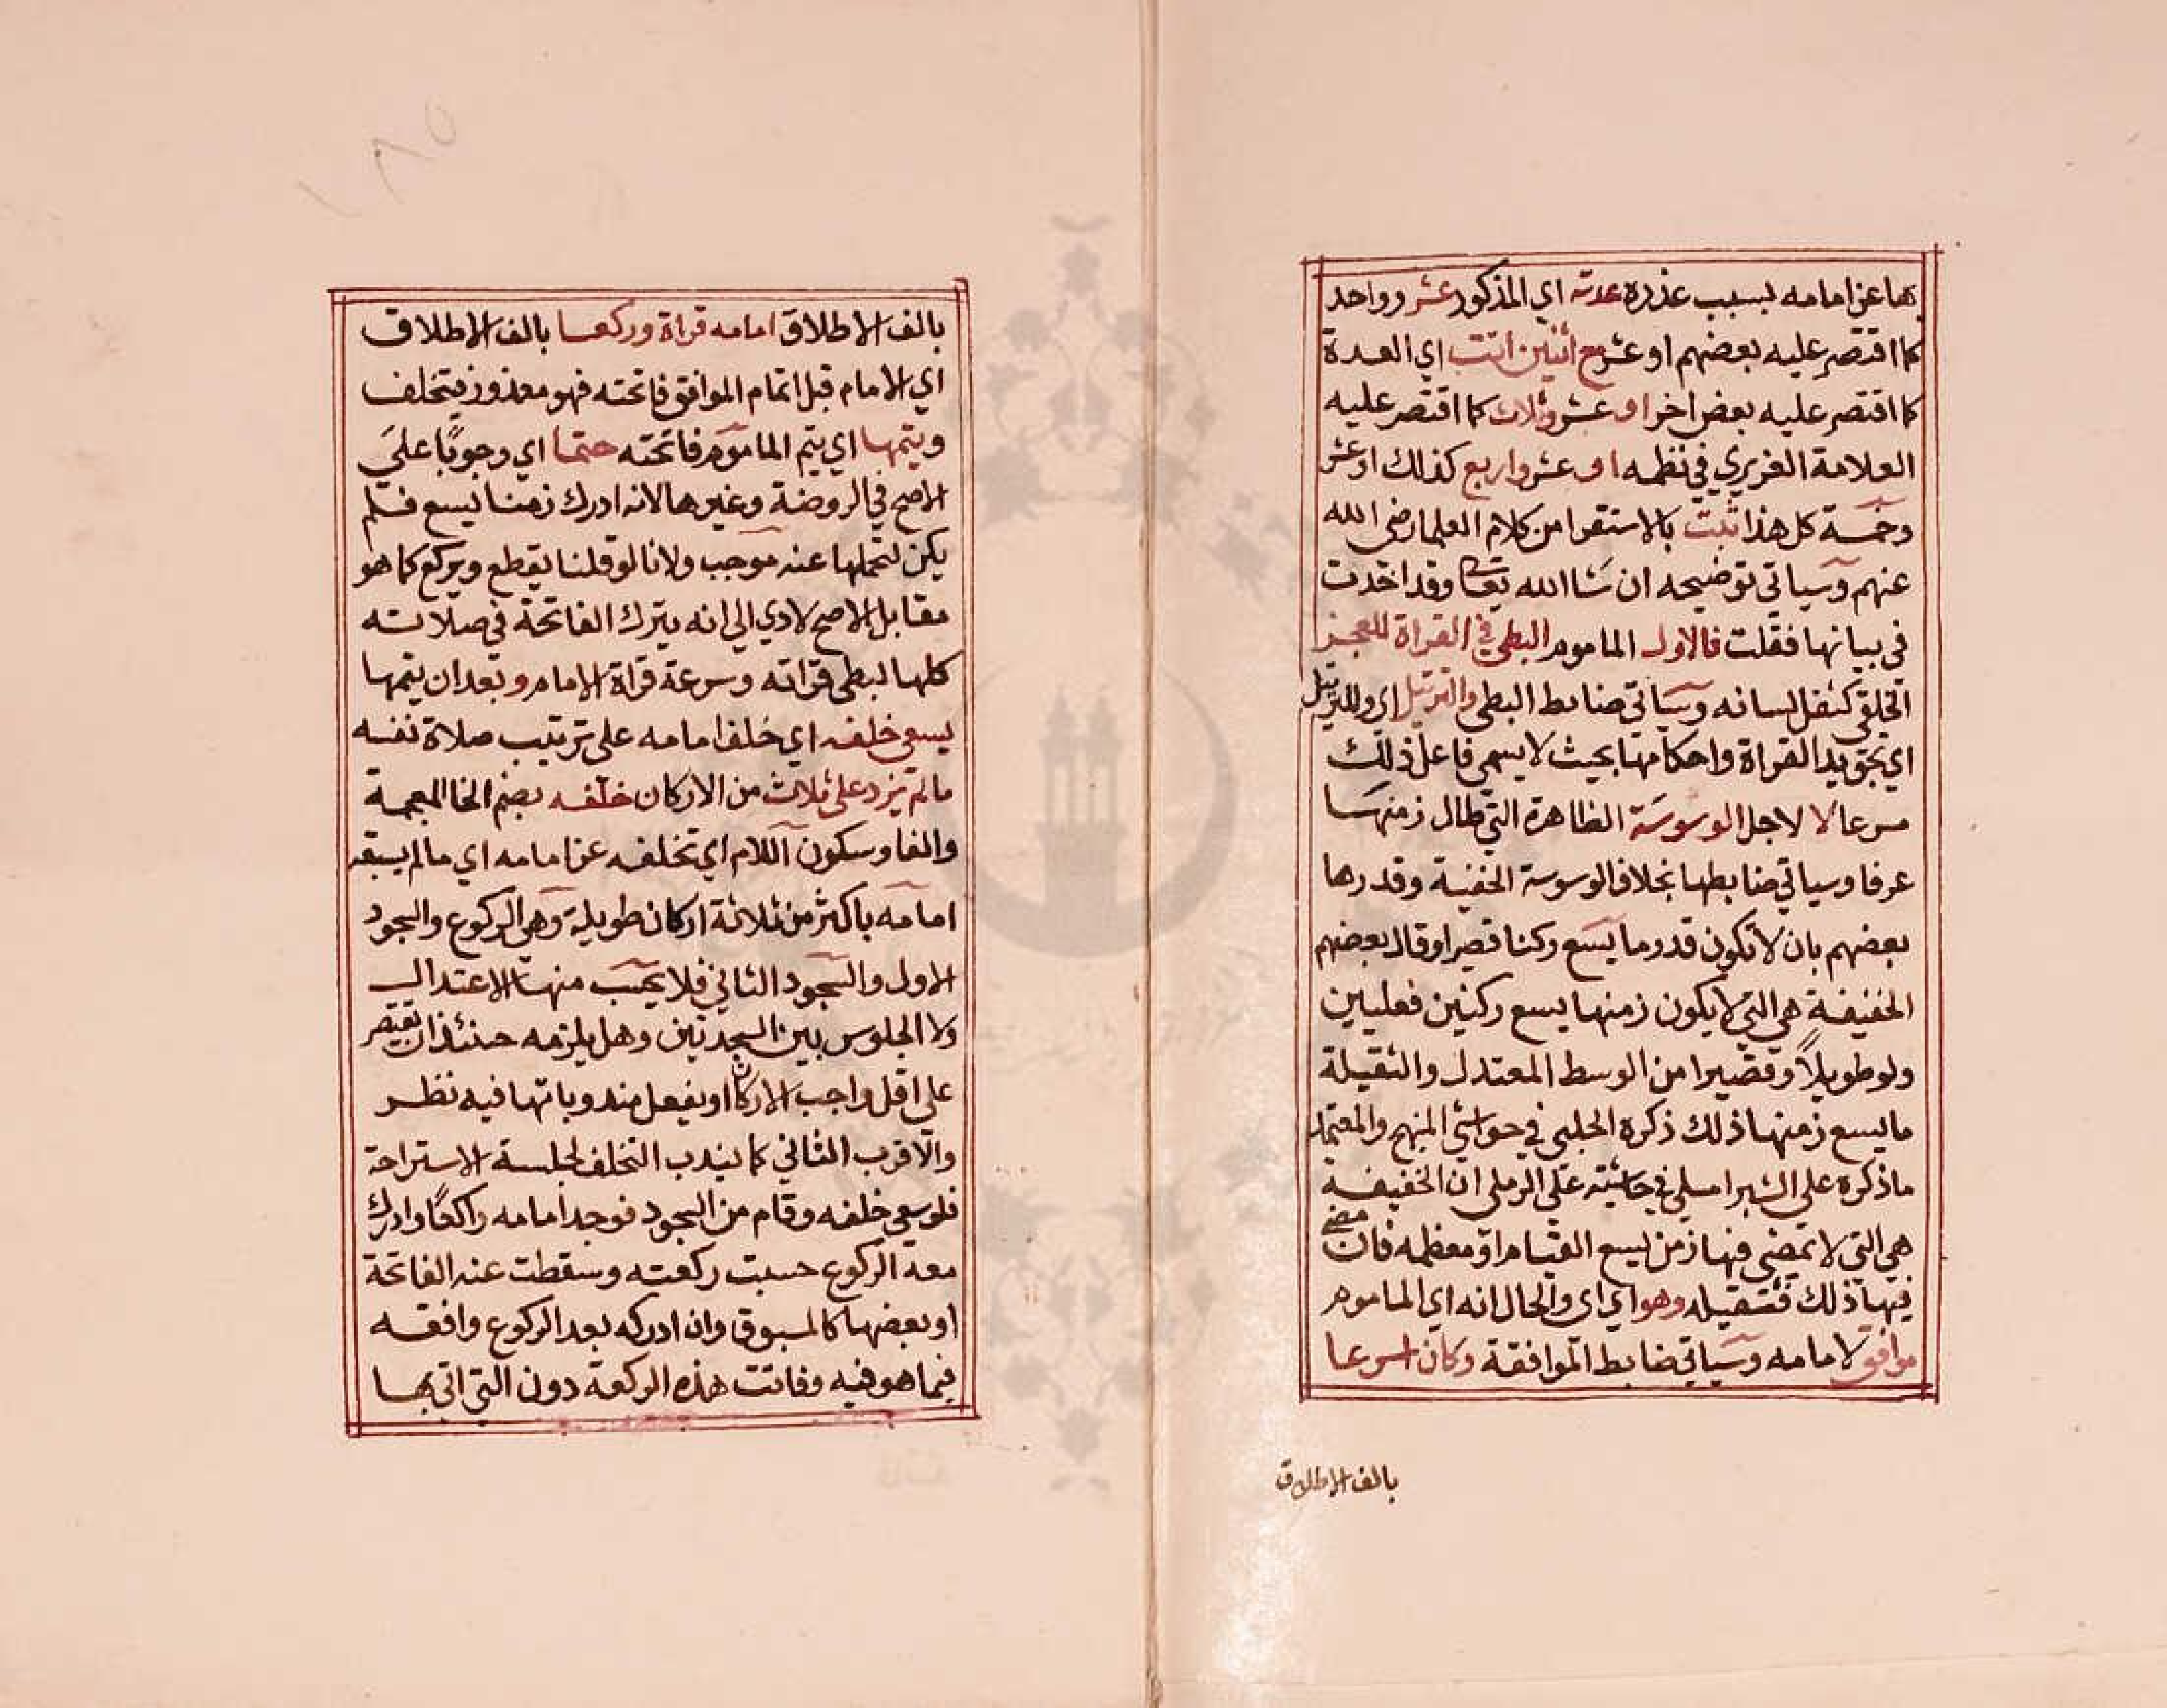 بها عن امامه بسبب عذره عدته اي المذكور عشر وواحد
كما اقتصر عليه بعضهم او عشر مع اثنين اتت اي العدة
كما اقتصر عليه بعض اخر او عشر وثلاث كما اقتصر عليه
العلامة العزيري في نظمه او عشر واربع كذلك او عشر
وخمسة كل هذا ثبت بالاستقرا من كلام العلما رضي الله
عنهم وسياتي توضيحه ان شا الله تعالى وقد اخذت
في بيانها فقلت فالاول الماموم البطي في القراة للعجز
الخلقي كثقل لسانه وسياتي ضابط البطي والترتيل اي وللترتيل
اي تجويد القراة واحكامها بحيث لا يسمي فاعل ذلك
مسرعا لا لاجل الوسوسة الظاهرة التي طال زمنها
عرفا وسياتي ضابطها بخلاف الوسوسة الخفيفة وقدرها
بعضهم بان لا تكون قدر ما يسع ركنا قصيرا وقال بعضهم
الخفيفة هي التي لا يكون زمنها يسع ركنين فعليين
ولو طويلاً وقصيرا من الوسط المعتدل والثقيلة
ما يسع زمنها ذلك ذكره الحلبي في حواشي المنهج والمعتمد
ما ذكره علي الشبراملسي في حاشيته علي الرملي ان الخفيفة
هي التي لا تمضي فيها زمن يسع القيام او معظمه فان مضي
فيها ذلك فثقيله وهو اي اي والحال انه اي الماموم
موافق لامامه وسياتي ضابط الموافقة وكان اسرعا
بالف الاطلاق
١٨٥
بالف الاطلاق امامه قراة وركعا بالف الاطلاق
اي الامام قبل اتمام الموافق فاتحته فهو معذور فيتخلف
ويتمها اي يتم الماموم فاتحته حتما اي وجوبًا علي
الاصح في الروضة وغيرها لانه ادرك زمنا يسع فلم
يكن لتحملها عنه موجب ولانا لو قلنا يقطع ويركع كما هو
مقابل الاصح لادي الي انه يترك الفاتحة في صلاته
كلها لبطي قراته وسرعة قراة الامام وبعد ان يتمها
يسعي خلفه اي خلف امامه علي ترتيب صلاة نفسه
ما لم تزد علي ثلاث من الاركان خلفه بضم الخا المعجمة
والفا وسكون اللام اي تخلفه عن امامه اي ما لم يسبقه
امامه باكثر من ثلاثة اركان طويلة وهي الركوع والسجود
الاول والسجود الثاني فلا يحسب منها الاعتدال
ولا الجلوس بين السجدتين وهل يلزمه حينئذ ان يقتصر
علي اقل واجب الاركان او يفعل مندوباتها فيه نظر
والاقرب الثاني كما يندب التخلف لجلسة الاستراحة
فلو سعي خلفه وقام من السجود فوجد امامه راكعًا وادرك
معه الركوع حسبت ركعته وسقطت عنه الفاتحة
او بعضها كالمسبوق وان ادركه بعد الركوع وافقه
فيما هو فيه وفاتت هذه الركعة دون التي اتي بها